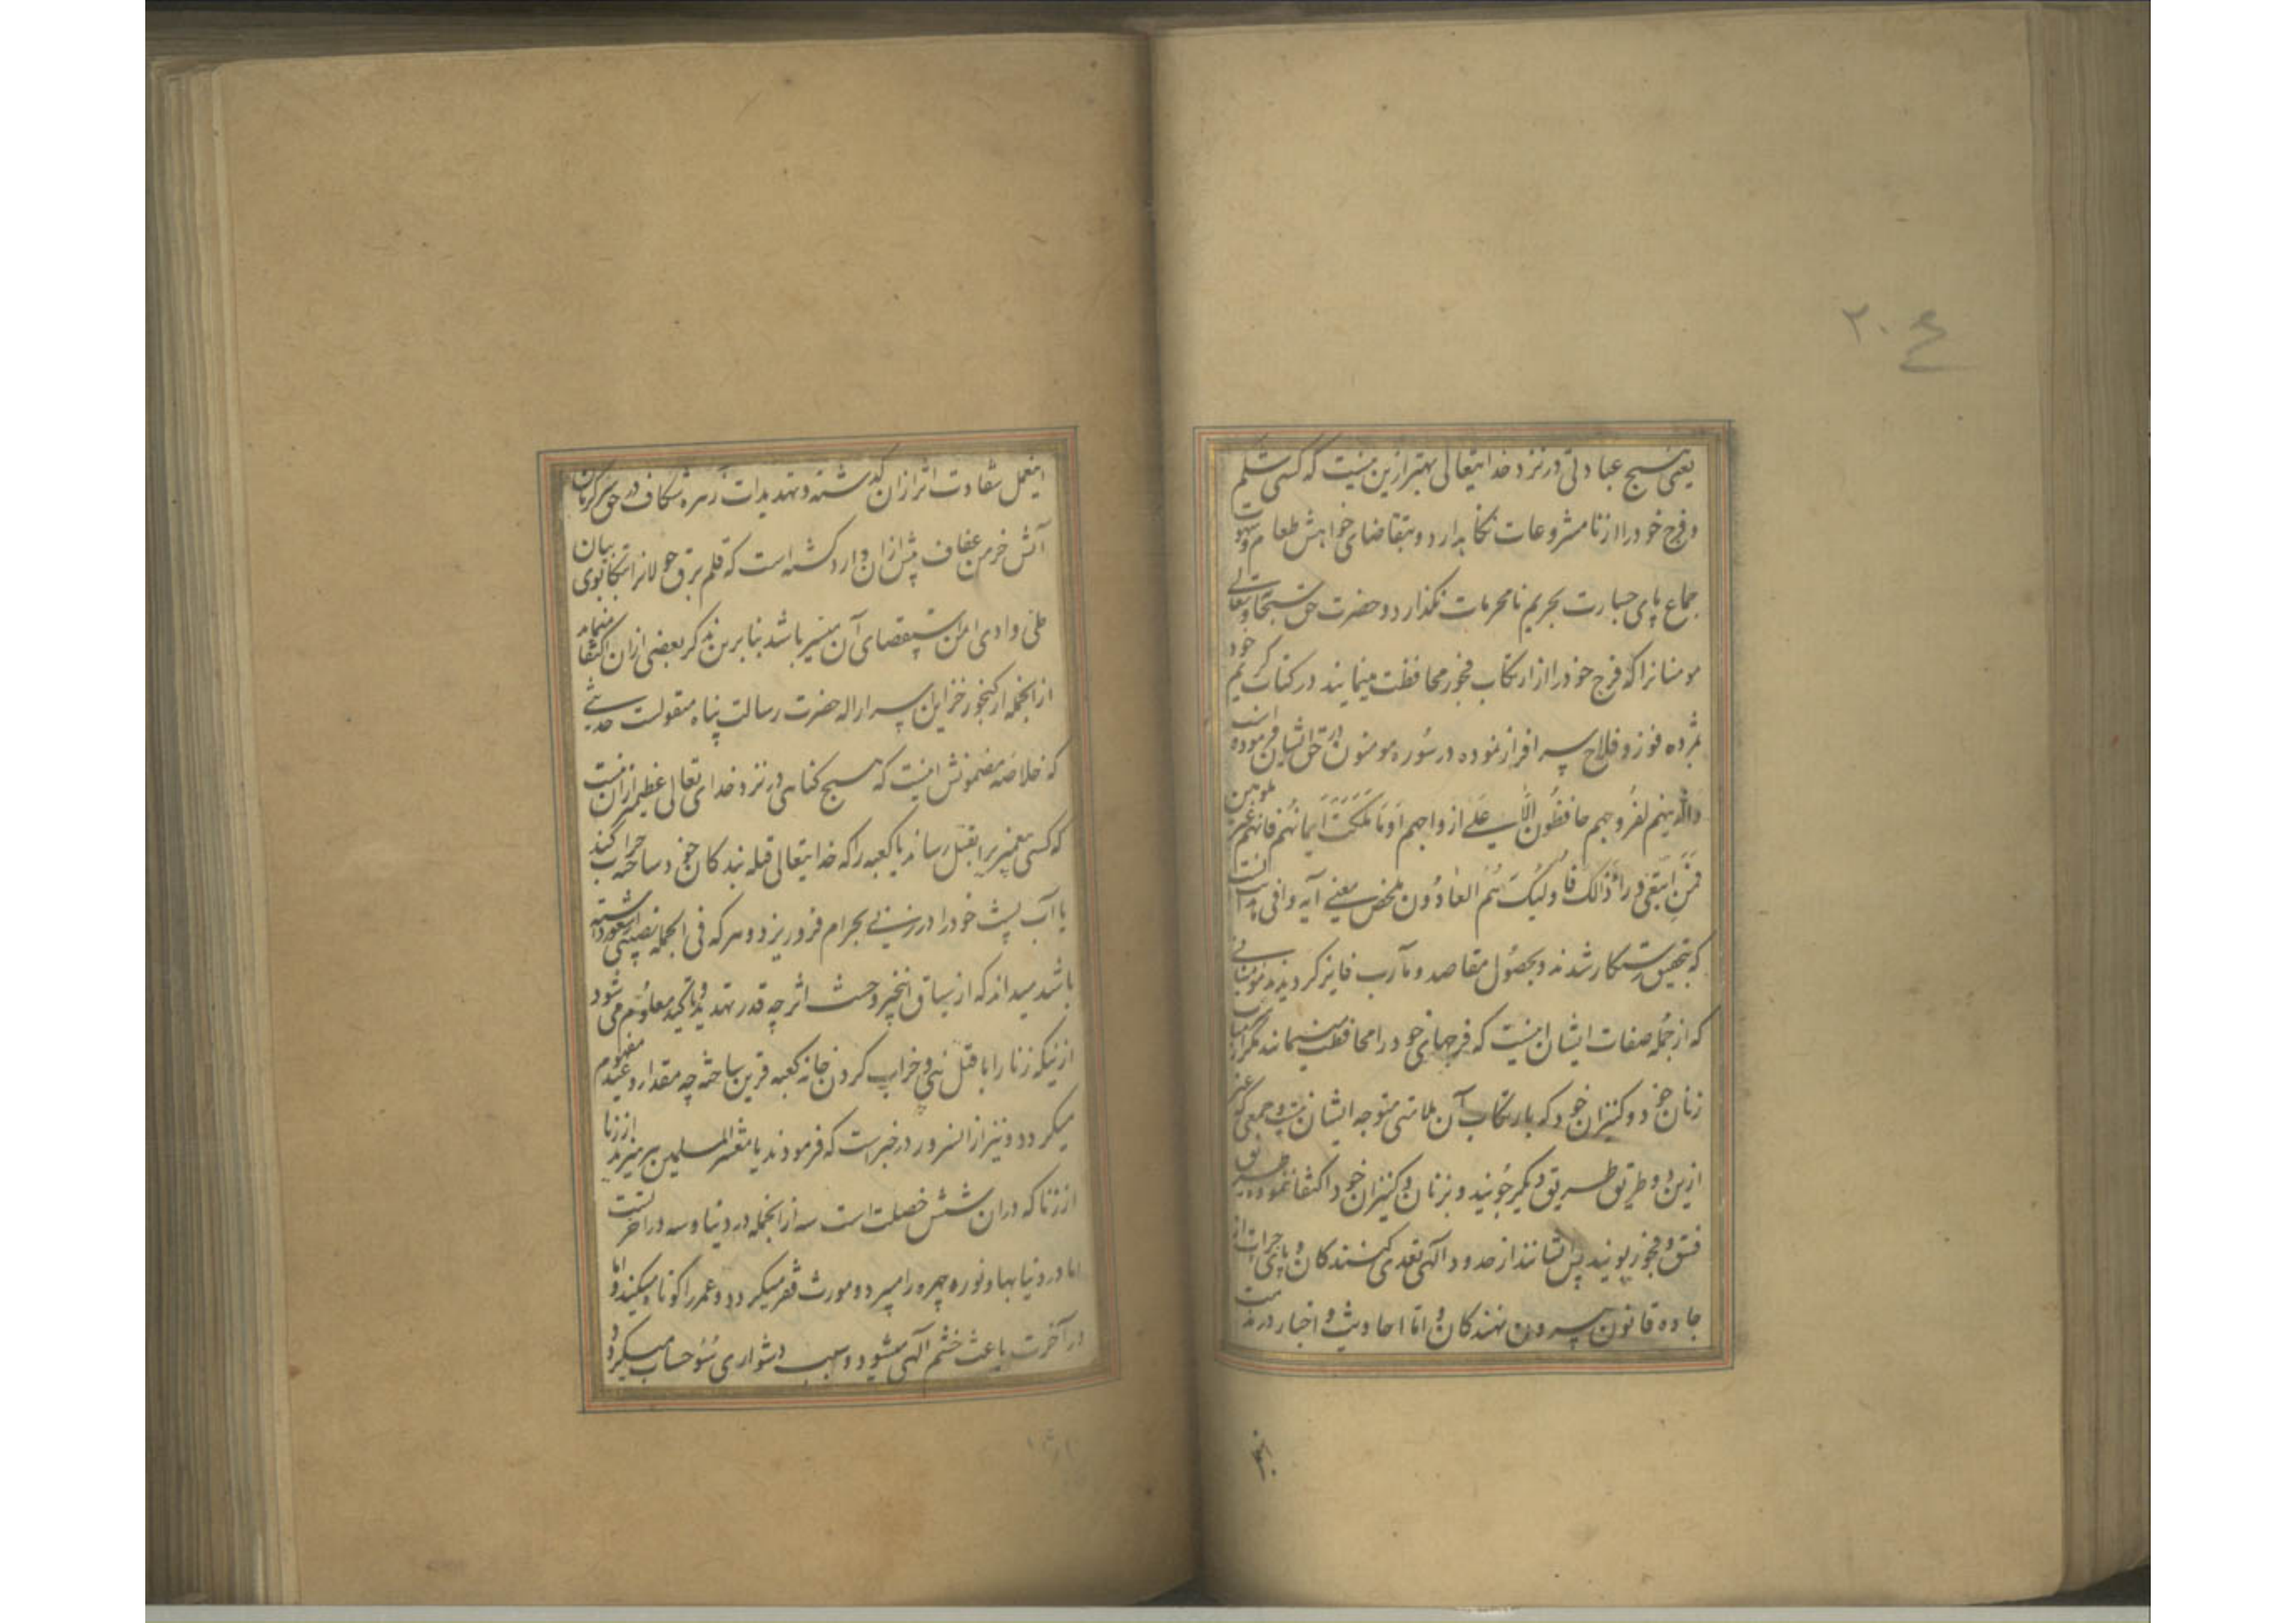 ۲۰۴
یعنی هیچ عبادتی در نزد خدایتعالی بهتر ازین نیست که کسی شکم
و فرج خود را از نامشروعات نکاهدارد و بتقاضای خواهش طعام و شهوت
جماع پای جسارت بحریم نامحرمات نکذارد و حضرت حق سبحانه و تعالی
مومنانرا که فرج خود را از ارتکاب فجور محافظت مینمایند در کتاب کریم خود
بمژده فوز و فلاح سرافراز نموده در سوره مومنون در حق ایشان فرموده است
والذینهم لفروجهم حافظون الا علی ازواجهم او ما ملکت ایمانهم فانهم غیر ملومین
فمن ابتغی وراء ذالک فاولئک هم العادون ملخص معنی آیه وافی هدایت آنست
که بتحقیق رستکار شدند و بحصول مقاصد و مآرب فایز کردیدند مومنانی
که از جمله صفات ایشان اینست که فرجهای خود را محافظت مینمایند مکر از
زنان خود و کنیزان خود که بارتکاب آن ملامتی متوجه ایشان نیست و جمعی که غیر
ازین دو طریق طریق دیکر جویند و بزنان و کنیزان خود اکتفا ننموده طریق
فسق و فجور پویند پس ایشانند از حدود الهی تعدی کنندکان و پای جرات از
جاده قانون بیرون نهندکان و اما احادیث و اخبار در مذمت
اینعمل شقاوت اثر ازان کذشته و تهدیدات زهره شکاف در حق سرکرمان
آتش خرمن عفاف بیش ازان وارد کشته است که قلم برق جولانرا بتکاپوی بیان
طی وادی امن استقصای آن میسر باشد بنابرین بذکر بعضی ازان اکتفا مینماید
از انجمله از کنجور خزاین اسرار اله حضرت رسالت پناه منقولست حدیثی
که خلاصه مضمونش اینست که هیچ کناهی در نزد خدای تعالی عظیمتر ازان نیست
که کسی پیغمبریرا بقتل رساند یا کعبه را که خدایتعالی قبله بندکان خود ساخته خراب کند
یا آب پشت خود را در زنی بحرام فرو ریزد و هر که فی الجمله نصیبی از شعور داشته
باشد میداند که از سیاق انخبر وحشت اثر چه قدر تهدید و تاکید معلوم می شود
ازینکه زنا را با قتل نبی و خراب کردن خانه کعبه قرین ساخته چه مقدار وعید مفهوم
میکردد و نیز از انسرور در خبر است که فرمودند یا معشر المسلمین بپرهیزید از زنا
از زنا که دران شش خصلت است سه از انجمله در دنیا و سه در آخرتست
اما در دنیا بها و نور چهره را میبرد و مورث فقر میکردد و عمر را کوتاه میکند و اما
در آخرت باعث خشم الهی میشود و سبب دشواری سوء حساب میکردد و